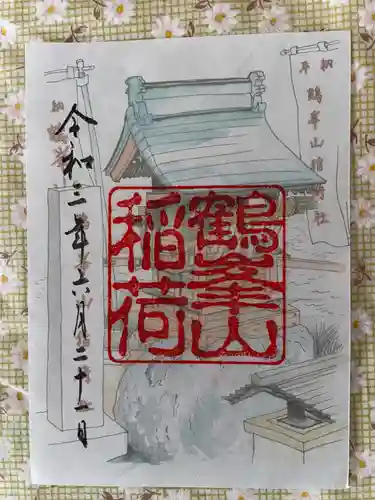 奉納
鶴峯山稲荷神社
鶴峯山
稲荷
令和三年六月二十一日